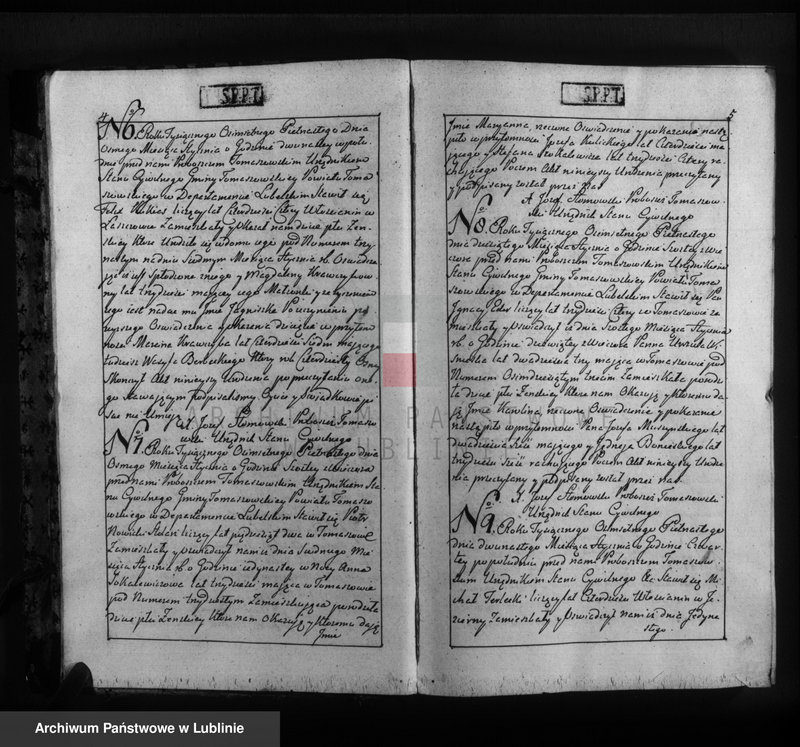 S.P.P.T.
4
No 6. Roku Tysiącznego Osimsetnego Pietnastego Dnia
Osmego Miesiąca Stycznia o Godzinie dwunastey w połu-
dnie przed nami Proboszczem Tomaszowskim Urzędnikiem
Stanu Cywilnego Gminy Tomaszowskiey Powiatu Toma-
szowskiego w Departamencie Lubelskim Stawił się
liczący lat Czterdzieści Cztery Włościanin w
Zamieszkały y Okazał nam dziecie płci Żen-
skiey które Urodziło się w domu iego pod Numerem trzy-
nastym na dniu Siodmym Miesiąca Stycznia r.b. Oswiadcza-
iąc iż iest spłodzone z niego y Magdaleny
ny lat trzydzieści maiącey iego Małżonki y że życzeniem
iego iest nadać mu Imie Jagniszka Po uczynieniu po-
wyższego Oswiadczenia y okazaniu dziecięcia w przytom-
ności Marcina Krawczyka lat Czterdzieści Siedm maiącego
tudzież Wasyla który ma Czterdzieści Osm
Skonczył Akt ninieyszy Urodzenia po przeczytaniu ono-
go Stawaiącym podpisalismy Oyciec y Swiadkowie pi-
sać nie Umieją
X. Jozef Słomowski Proboszcz Tomaszo-
wski Urzędnik Stanu Cywilnego
No 7. Roku Tysiącznego Osimsetnego Pietnastego dnia
Osmego Miesiąca Stycznia o Godzinie Szostey z wieczora
przed nami Proboszczem Tomaszowskim Urzędnikiem Sta-
nu Cywilnego Gminy Tomaszowskiey Powiatu Tomaszo-
wskiego w Departamencie Lubelskim Stawił się Piotr
Nowicki liczący lat pięćdziesiąt dwa w Tomaszowie
Zamieszkały y oswiadczył nam iż dnia Siodmego Mie-
siąca Stycznia r.b. o Godzinie iedynastey w Nocy Anna
Sokalewiczowa lat trzydzieści maiąca w Tomaszowie
pod Numerem trzydziestym Zamieszkująca porodziła
dziecie płci Żenskiey które nam okazuje y któremu daje
Imie
S.P.P.T.
5
Imie Maryanna, rzeczone Oświadczenie y pokazanie nastą-
piło w przytomności Jozefa Kulickiego lat Czterdzieści ma-
jącego y Stefana Sokalewicza lat trzydzieści Cztery ra-
chującego Poczem Akt ninieyszy Urodzenia przeczytany
y podpisany został przez Nas
X. Jozef Słomowski Proboszcz Tomaszow-
ski Urzędnik Stanu Cywilnego
No 8. Roku Tysiącznego Osimsetnego Pietnastego
dnia dziewiątego Miesiąca Stycznia o Godzinie Szostey z wie-
czora przed nami Proboszczem Tomaszowskim Urzędnikiem
Stanu Cywilnego Gminy Tomaszowskiey Powiatu Toma-
szowskiego w Departamencie Lubelskim Stawił się Pan
Jgnacy Eder liczący lat trzydzieści Cztery w Tomaszowie za-
mieszkały y oswiadczył iż dnia Szostego Miesiąca Stycznia
r.b. o Godzinie dziewiątey z wieczora Panna Urszula
lat dwadzieścia trzy maiąca w Tomaszowie pod
Numerem Osimdziesiątym trzecim Zamieszkała porodzi-
ła dziecie płci Żenskiey które nam Okazują y któremu da-
ją Imie Karolina, rzeczone Oswiadczenie y pokazanie
nastąpiło w przytomności Pana Jozefa Muszynskiego lat
dwadzieścia Sześć maiącego y Jędrzeja lat
trzydzieści Sześć rachującego Poczem Akt ninieyszy Urodze-
nia przeczytany y podpisany został przez nas.
X. Jozef Słomowski Proboszcz Tomaszowski
Urzędnik Stanu Cywilnego
No 9. Roku Tysiącznego Osimsetnego Pietnastego
dnia dwunastego Miesiąca Stycznia o Godzinie Czwar-
tey po południu przed nami Proboszczem Tomaszow-
skim Urzędnikiem Stanu Cywilnego &c Stawił się Mi-
chał Terlecki liczący lat Czterdzieści Włościanin w Je-
zierny Zamieszkały y Oswiadczył nam iż dnia Jedyna-
stego
ARCHIWUM PA
UBLI
Archiwum Państwowe w Lublinie